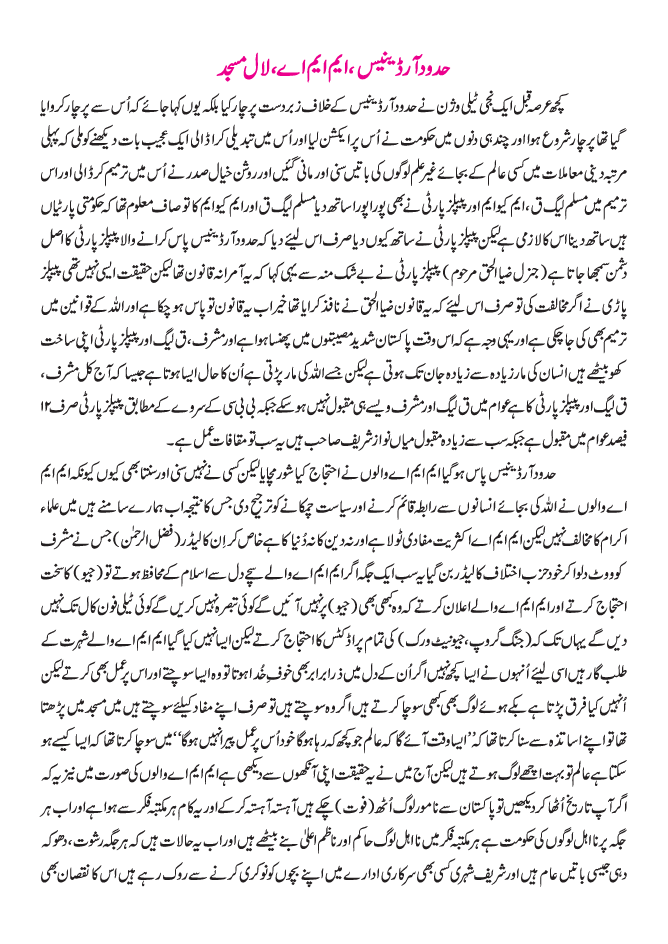 حدود آرڈینیس، ایم ایم اے، لال مسجد
کچھ عرصہ قبل ایک نجی ٹیلی وژن نے حدود آرڈینیس کے خلاف زبردست پرچار کیا بلکہ یوں کہا جائے کہ اُس سے پرچار کروایا
گیا تھا پرچار شروع ہوا اور چند ہی دنوں میں حکومت نے اُس پر ایکشن لیا اور اُس میں تبدیلی کر اڈالی ایک عجیب بات دیکھنے کو ملی کہ پہلی
مرتبہ دینی معاملات میں کسی عالم کے بجائے غیر علم لوگوں کی باتیں سنی اور مانی گئیں اور روشن خیال صدر نے اُس میں ترمیم کر ڈالی اور اس
ترمیم میں مسلم لیگ ق، ایم کیو ایم اور پیپلز پارٹی نے بھی پورا پورا ساتھ دیا مسلم لیگ ق اور ایم کیو ایم کا تو صاف معلوم تھا کہ حکومتی پارٹیاں
ہیں ساتھ دینا اس کا لازمی ہے لیکن پیپلز پارٹی نے ساتھ کیوں دیا صرف اس لیئے دیا کہ حدود آرڈینیس پاس کرانے والا پیپلز پارٹی کا اصل
دشمن سمجھا جاتا ہے (جنرل ضیا الحق مرحوم) پیپلز پارٹی نے بے شک منہ سے یہی کہا کہ یہ آمرانہ قانون تھا لیکن حقیقت ایسی نہیں تھی پیپلز
پارٹی نے اگر مخالفت کی تو صرف اس لیئے کہ یہ قانون ضیا الحق نے نافذ کرایا تھا خیر اب یہ قانون تو پاس ہو چکا ہے اور اللہ کے قوانین میں
ترمیم بھی کی جا چکی ہے اور یہی وجہ ہے کہ اس وقت پاکستان شدید مصیبتوں میں پھنسا ہوا ہے اور مشرف، ق لیگ اور پیپلز پارٹی اپنی ساخت
کھو بیٹھے ہیں انسان کی مار زیادہ سے زیادہ جان تک ہوتی ہے لیکن جسے اللہ کی مار پڑتی ہے اُن کا حال ایسا ہوتا ہے جیسا کہ آج کل مشرف،
ق لیگ اور پیپلز پارٹی کا ہے عوام میں ق لیگ اور مشرف ویسے ہی مقبول نہیں ہو سکے جبکہ بی بی سی کے سروے کے مطابق پیپلز پارٹی صرف ۱۲
فیصد عوام میں مقبول ہے جبکہ سب سے زیادہ مقبول میاں نواز شریف صاحب ہیں یہ سب تو مقافات عمل ہے۔
حدود آرڈینیس پاس ہو گیا ایم ایم اے والوں نے احتجاج کیا شور مچایا لیکن کسی نے نہیں سنی اور سنتا بھی کیوں کیونکہ ایم ایم
اے والوں نے اللہ کی بجائے انسانوں سے رابطہ قائم کرنے اور سیاست چمکانے کو ترجیح دی جس کا نتیجہ اب ہمارے سامنے ہیں میں علماء
اکرام کا مخالف نہیں لیکن ایم ایم اے اکثریت مفادی ٹولا ہے اور نہ دین کا نہ دُنیا کا ہے خاص کر اِن کا لیڈر (فضل الرحمٰن) جس نے مشرف
کو ووٹ دلوا کر خود حزب اختلاف کا لیڈر بن گیا یہ سب ایک جگہ اگر ایم ایم اے والے سچے دل سے اسلام کے محافظ ہوتے تو (جیو) کا سخت
احتجاج کرتے اور ایم ایم اے والے اعلان کرتے کہ وہ کبھی بھی (جیو) پر نہیں آئیں گے کوئی تبصرہ نہیں کریں گے کوئی ٹیلی فون کال تک نہیں
دیں گے یہاں تک کہ (جنگ گروپ، جیو نیٹ ورک) کی تمام پراڈکٹس کا احتجاج کرتے لیکن ایسا نہیں کیا گیا ایم ایم اے والے شہرت کے
طلب گار ہیں اسی لیئے اُنہوں نے ایسا کچھ نہیں اگر اُن کے دل میں ذرا برابر بھی خوفِ خُدا ہوتا تو وہ ایسا سوچتے اور اس پر عمل بھی کرتے لیکن
اُنہیں کیا فرق پڑتا ہے بکے ہوئے لوگ بھی کبھی سوچا کرتے ہیں اگر وہ سوچتے ہیں تو صرف اپنے مفاد کیلئے سوچتے ہیں میں مسجد میں پڑھتا
تھا تو اپنے اساتذہ سے سنا کرتا تھا کہ ’’ایسا وقت آئے گا کہ عالم جو کچھ کہہ رہا ہو گا خود اُس پر عمل پیرا نہیں ہوگا‘‘ میں سوچا کرتا تھا کہ ایسا کیسے ہو
سکتا ہے عالم تو بہت اچھے لوگ ہوتے ہیں لیکن آج میں نے یہ حقیقت اپنی آنکھوں سے دیکھی ہے ایم ایم اے والوں کی صورت میں نیز یہ کہ
اگر آپ تاریخ اُٹھا کر دیکھیں تو پاکستان سے نامور لوگ اُٹھ (فوت) چکے ہیں آہستہ آہستہ کر کے اور یہ کام ہر مکتبہ فکر سے ہوا ہے اور اب ہر
جگہ پر نا اہل لوگوں کی حکومت ہے ہر مکتبہ فکر میں نا اہل لوگ حاکم اور ناظم اعلیٰ بنے بیٹھے ہیں اور اب یہ حالات ہیں کہ ہر جگہ رشوت، دھوکہ
دہی جیسی باتیں عام ہیں اور شریف شہری کسی بھی سرکاری ادارے میں اپنے بچوں کو نوکری کرنے سے روک رہے ہیں اس کا نقصان بھی